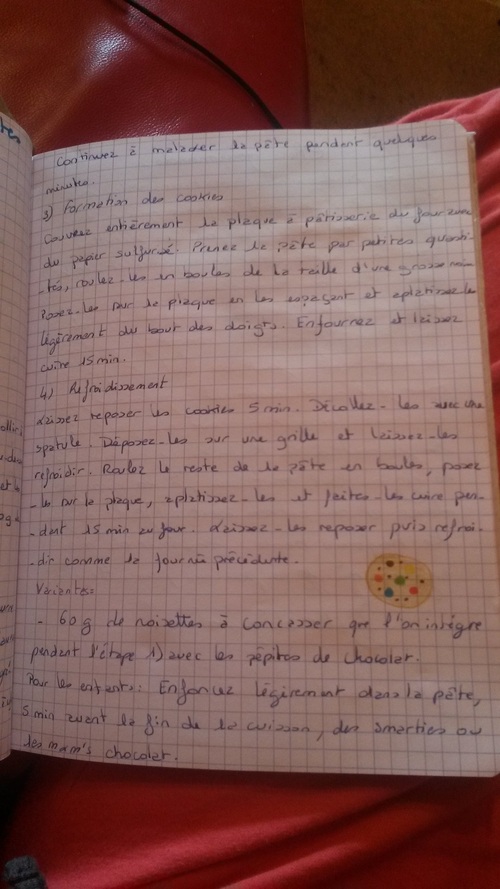 Continuez à malaxer la pâte pendant quelques
minutes.
3) Formation des cookies
Couvrez entièrement la plaque à pâtisserie du four avec
du papier sulfurisé. Prenez la pâte par petites quanti-
-tés, roulez-les en boules de la taille d'une grosse noix
Posez-les sur la plaque en les espaçant et aplatissez-les
légèrement du bout des doigts. Enfournez et laissez
cuire 15 min.
4) Refroidissement
Laissez reposer les cookies 5 min. Décollez-les avec une
spatule. Déposez-les sur une grille et laissez-les
refroidir. Roulez le reste de la pâte en boules, posez
-les sur la plaque, aplatissez-les et faites-les cuire pen-
-dant 15 min au four. Laissez-les reposer puis refroi-
-dir comme la fournée précédente.
Variantes:
- 60 g de noisettes à concasser que l'on intègre
pendant l'étape 1) avec les pépites de chocolat.
Pour les enfants: Enfoncez légèrement dans la pâte,
5 min avant la fin de la cuisson, des smarties ou
des m&m's chocolat.